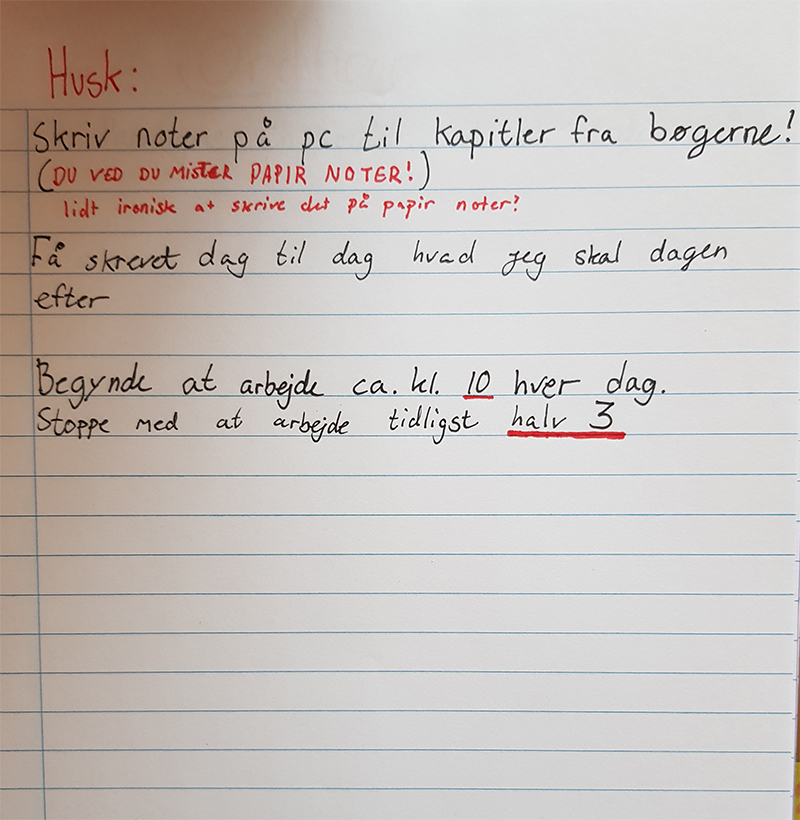 Husk:
Skriv noter på pc til kapitler fra bøgerne!
(DU VED DU MISTER PAPIR NOTER!)
lidt ironisk at skrive det på papir noter?
Få skrevet dag til dag hvad jeg skal dagen
efter
Begynde at arbejde ca. kl. 10 hver dag.
Stoppe med at arbejde tidligst halv 3